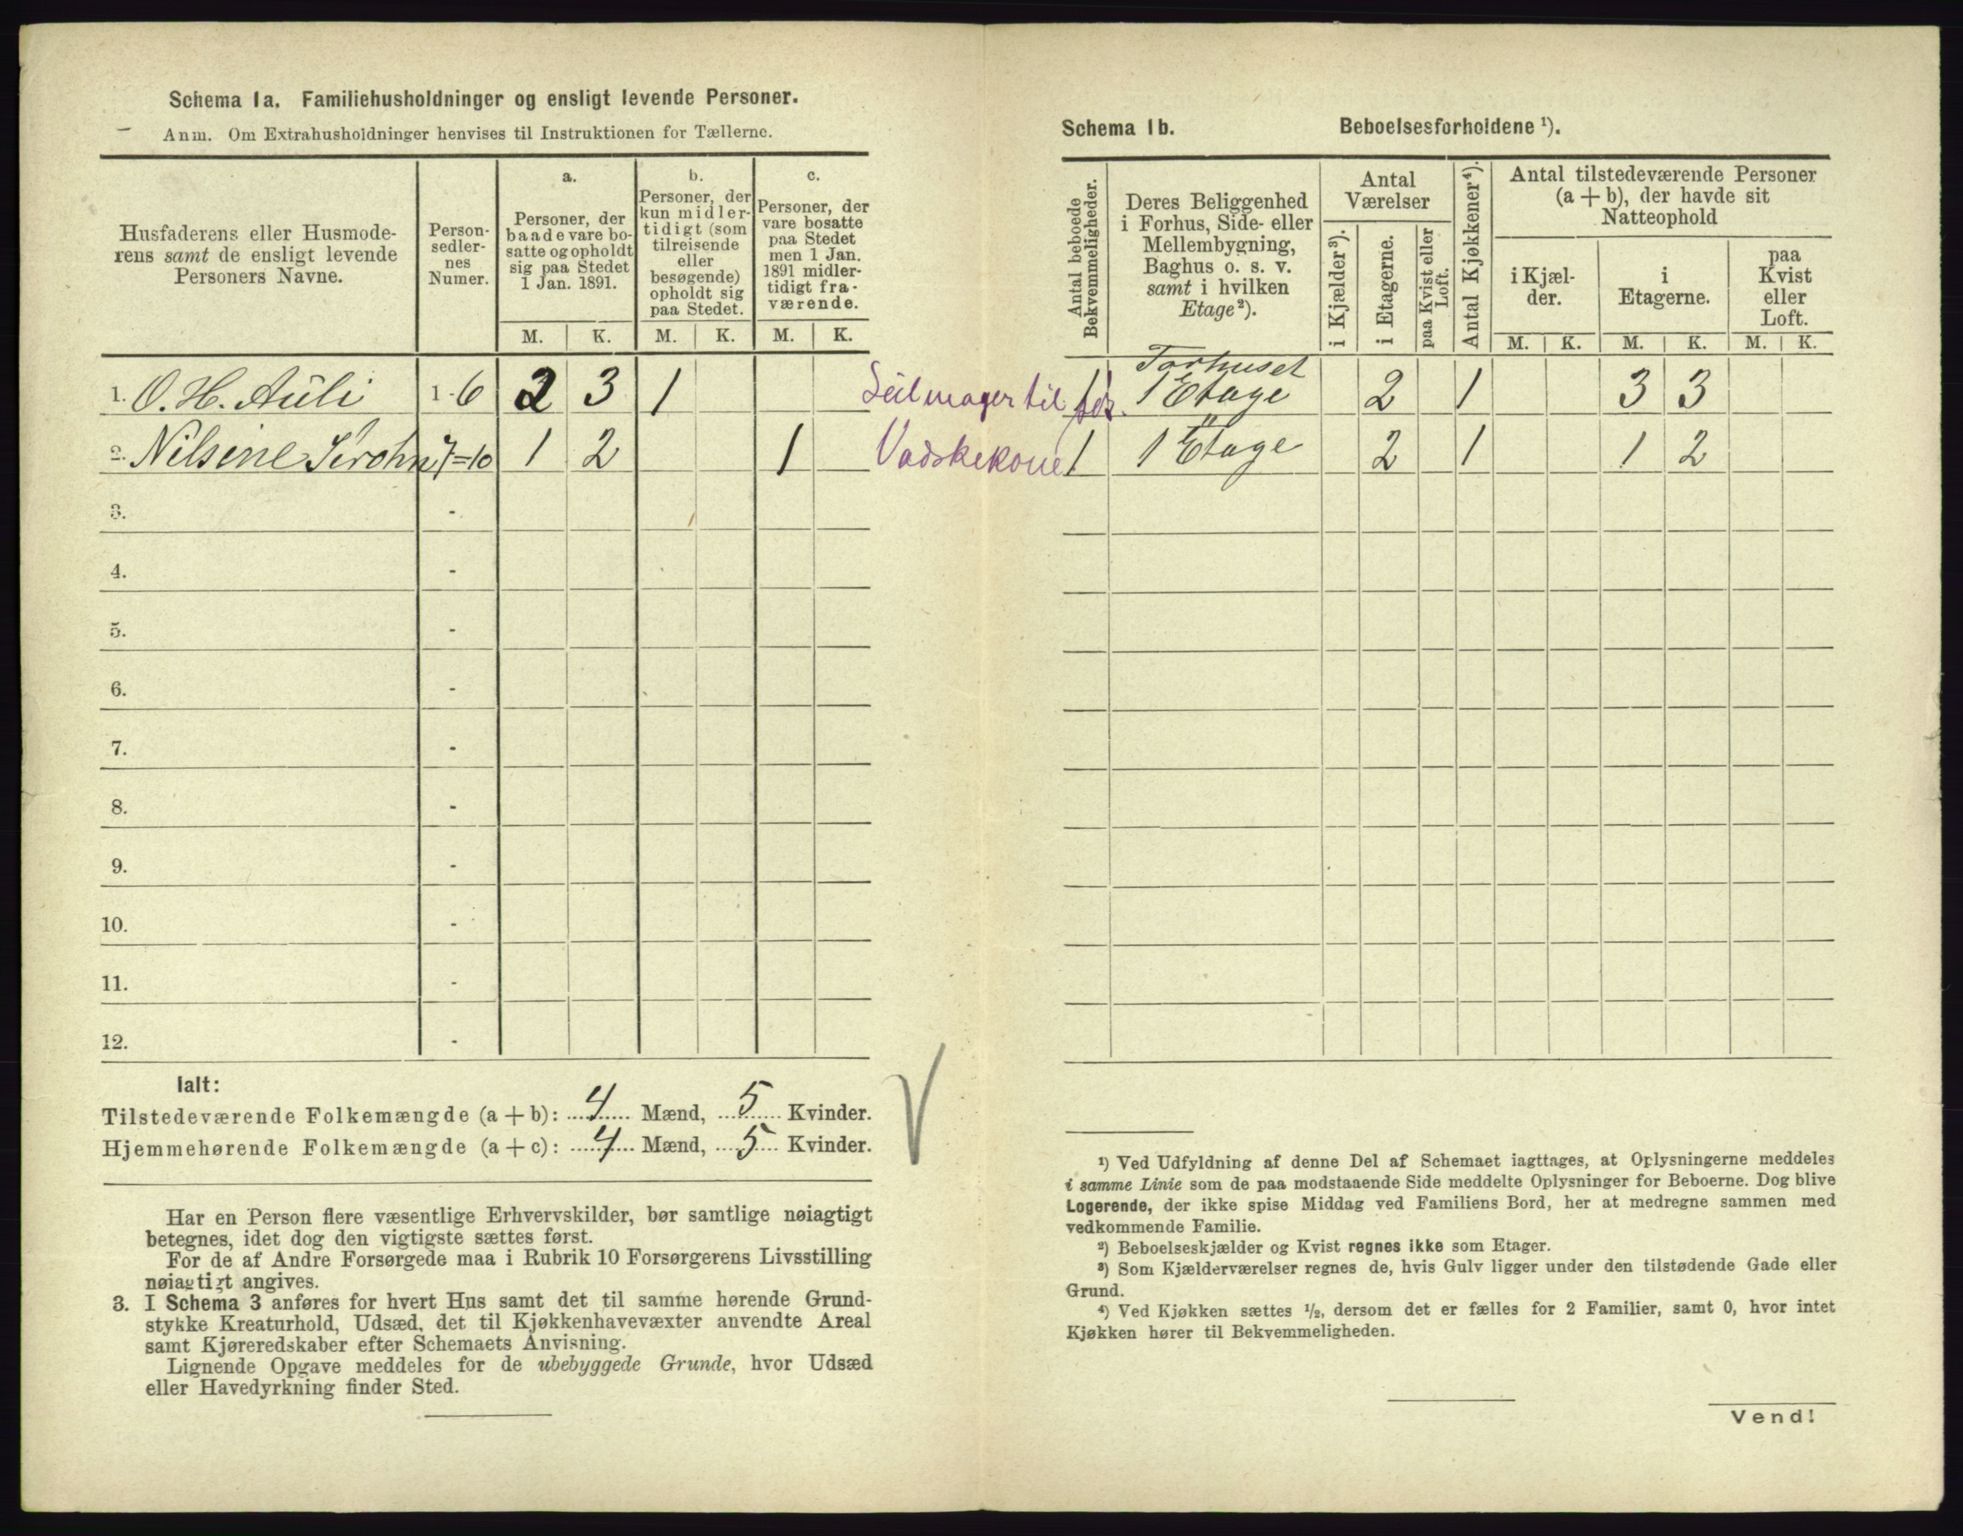 Schema 1a. Familiehusholdninger og ensligt levende Personer.
Anm. Om Extrahusholdninger henvises til Instruktionen for Tællerne.
Husfaderens eller Husmode-
rens samt de ensligt levende
Personers Navne.
Person-
sedler-
nes
Numer.
a.
Personer, der
baade vare bo-
satte og opholdt
sig paa Stedet
1 Jan. 1891.
b.
Personer, der
kun midler-
tidigt (som
tilreisende
eller
besøgende)
opholdt sig
paa Stedet.
c.
Personer, der
vare bosatte
paa Stedet
men 1 Jan.
1891 midler-
tidigt fra-
værende.
M. K. M. K. M. K.
1. O. H. Auli 1-6 2 3 1 Seilmager til
2. Nilsine 7=10 1 2 1 Vadskekone
3. -
4. -
5. -
6. -
7. -
8. -
9. -
10. -
11. -
12. -
Ialt:
Tilstedeværende Folkemængde (a + b): 4 Mænd, 5 Kvinder.
Hjemmehørende Folkemængde (a + c): 4 Mænd, 5 Kvinder.
Har en Person flere væsentlige Erhvervskilder, bør samtlige nøiagtigt
betegnes, idet dog den vigtigste sættes først.
For de af Andre Forsørgede maa i Rubrik 10 Forsørgerens Livsstilling
nøiagtigt angives.
3. I Schema 3 anføres for hvert Hus samt det til samme hørende Grund-
stykke Kreaturhold, Udsæd, det til Kjøkkenhavevæxter anvendte Areal
samt Kjøreredskaber efter Schemaets Anvisning.
Lignende Opgave meddeles for de ubebyggede Grunde, hvor Udsæd
eller Havedyrkning finder Sted.
Schema 1b. Beboelsesforholdene ¹).
Antal beboede
Bekvemmeligheder.
Deres Beliggenhed
i Forhus, Side- eller
Mellembygning,
Baghus o. s. v.
samt i hvilken
Etage²).
Antal
Værelser
i Kjælder³).
i Etagerne.
paa Kvist eller
Loft.
Antal Kjøkkener⁴).
Antal tilstedeværende Personer
(a + b), der havde sit
Natteophold
i Kjæl-
der.
i
Etagerne.
paa
Kvist
eller
Loft.
M. K. M. K. M. K.
Forhuset
1 1 Etage 2 1 3 3
1 1 Etage 2 1 1 2
¹) Ved Udfyldning af denne Del af Schemaet iagttages, at Oplysningerne meddeles
i samme Linie som de paa modstaaende Side meddelte Oplysninger for Beboerne. Dog blive
Logerende, der ikke spise Middag ved Familiens Bord, her at medregne sammen med
vedkommende Familie.
²) Beboelseskjælder og Kvist regnes ikke som Etager.
³) Som Kjælderværelser regnes de, hvis Gulv ligger under den tilstødende Gade eller
Grund.
⁴) Ved Kjøkken sættes ½, dersom det er fælles for 2 Familier, samt 0, hvor intet
Kjøkken hører til Bekvemmeligheden.
Vend!